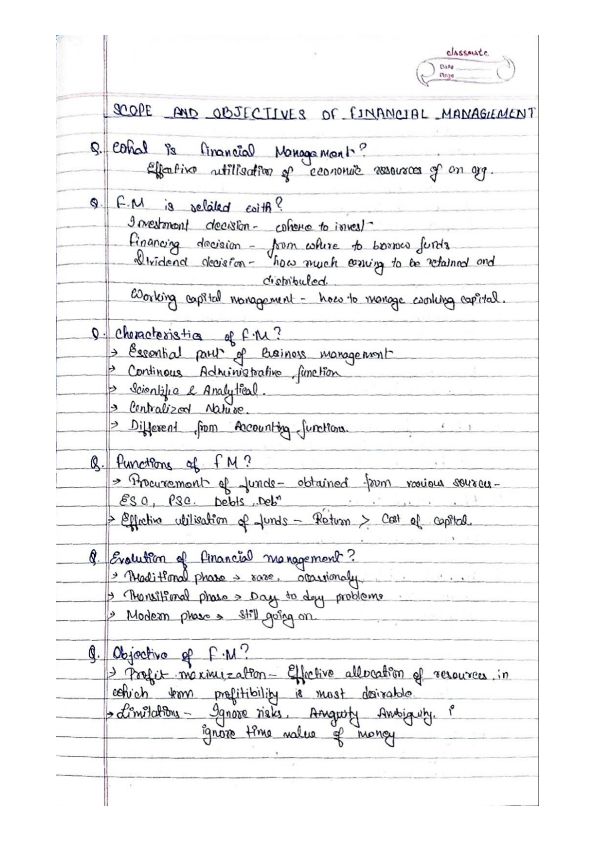 classmate
Date
Page
SCOPE AND OBJECTIVES OF FINANCIAL MANAGEMENT
Q. What is Financial Management?
Effective utilisation of economic resources of an org.
Q. F.M is related with?
Investment decision - where to invest
Financing decision - from where to borrow funds
Dividend decision - how much coming to be retained and
distributed.
Working capital management - how to manage working capital.
Q. Characteristics of F.M?
→ Essential part of Business management
→ Continous Administrative function
→ Scientific & Analytical.
→ Centralized Nature.
→ Different from Accounting functions.
Q. Functions of FM?
→ Procurement of funds - obtained from various sources -
ESC, PSC. Debts, Debⁿ
→ Effective utilisation of funds - Return > Cost of capital.
Q. Evolution of Financial management?
→ Traditional phase → rare, ocassionaly
→ Transitional phase → Day to day problems
→ Modern phase → still going on.
Q. Objective of F.M?
→ Profit maximization - Effective allocation of resources in
which term profitibility is most desirable.
→ Limitations - Ignore risks, Ambiguity,
ignore time value of money